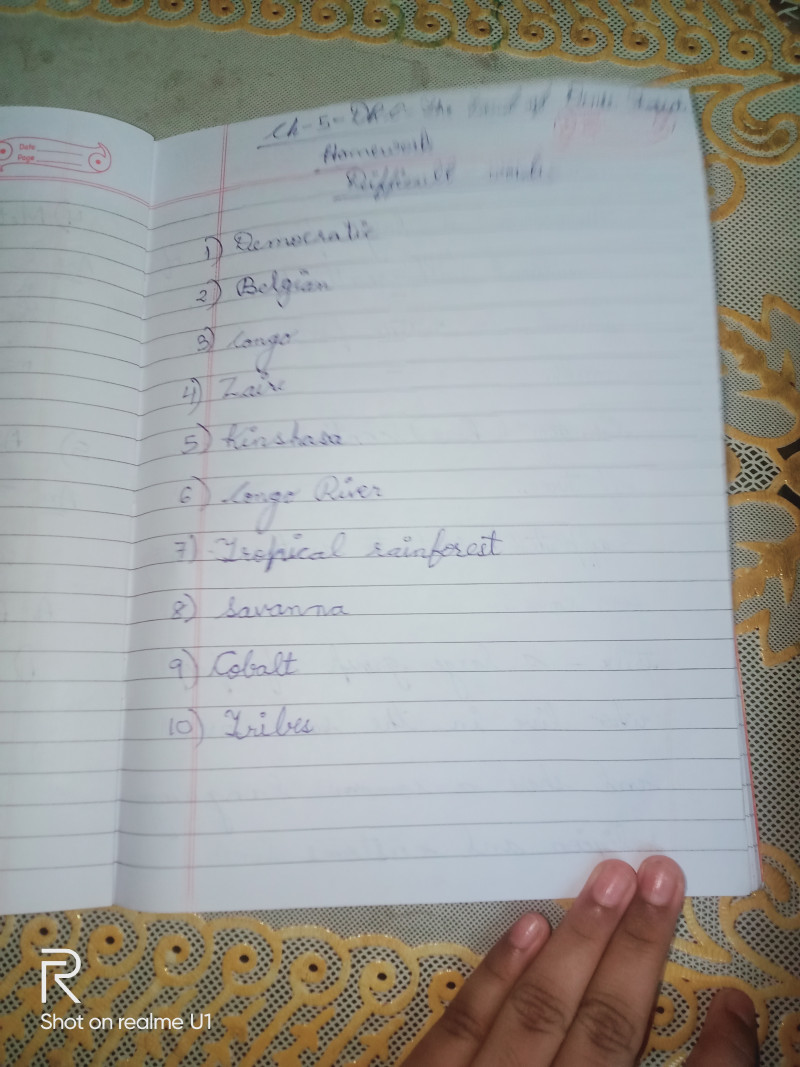 Date
Page
Ch-5-DRC the land of
Homework
Difficult words
1) Democratic
2) Belgian
3) Congo
4) Zaire
5) Kinshasa
6) Congo River
7) Tropical rainforest
8) Savanna
9) Cobalt
10) Tribes
R
Shot on realme U1